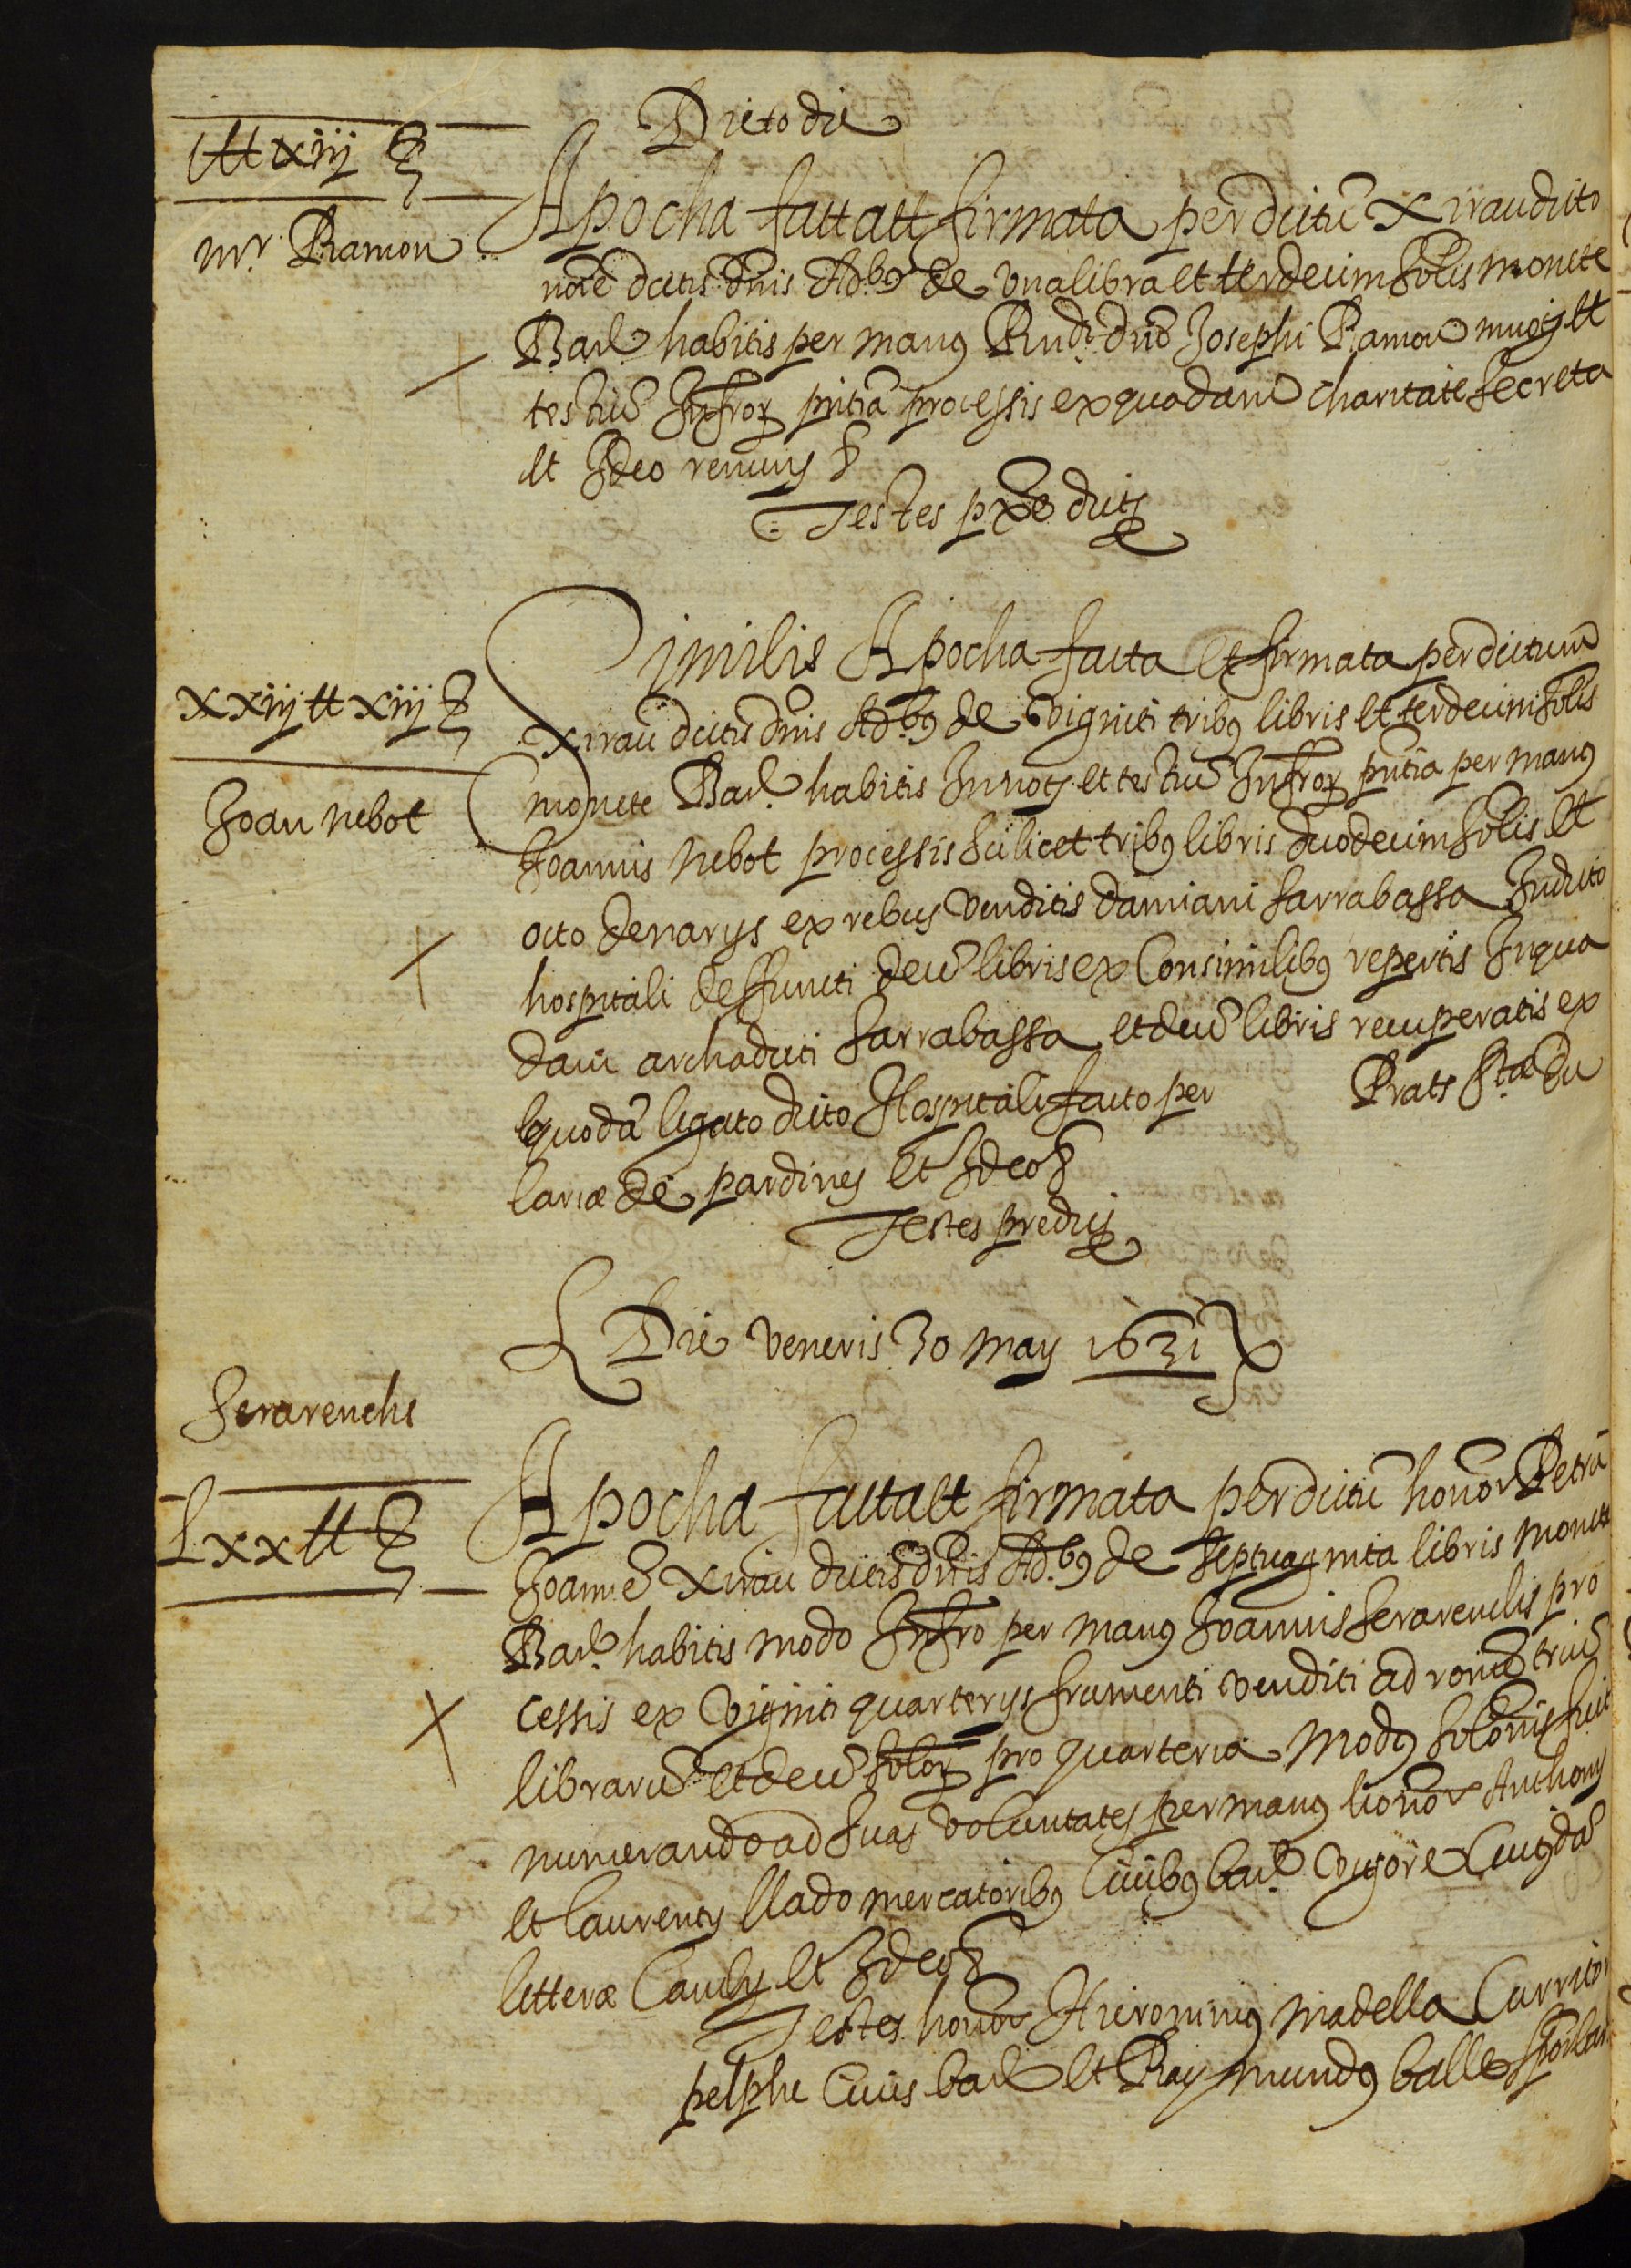 Dicto die
j tt xiij s
Mr. Ramon
Apocha facta et firmata per dictū Xirau dicto
noīe dictis dnīs Adb9 de vna libra et terdecim solis monete
Barl habitis per manus Rndi dnō Josephi Ramon mugis et
testiū Infror pntia processis ex quadam charitate secreta
et Ideo renuns &
Testes prædicti
xxiij tt xiij s
Joan nebot
Similis Apocha facta et firmata per dictum
Xirau dictis dnis Adb9 de viginti trib9 libris et terdecim solis
monete Barl habitis In nots et testiū Infror pntia per man9
Joannis nebot processis scilicet trib9 libris duodecim solis et
octo denarys ex rebus venditis damiani sarrabassa In dicto
hospitali deffuncti decē libris ex Consimilib9 repertis In qua
dam archa dicti sarrabassa et decē libris recuperatis ex
quodā legato dicto Hospitali facto per Prats
lariæ de pardines et Ideo &
Testes predicti
Die veneris 30 may 1631
Serarenchs
Lxx tt s
Apocha facta et firmata per dictū honor Petrū
Joannē Xirau dictis dnis Adb9 de septuaginta libris monete
Barl habitis modo Infro per man9 Joannis serarenchs pro
cessis ex viginti quarterys frumenti venditi ad ronē triū
librarū et decē solor pro quarteria Mod9 solonis fuit
numerando ad suas voluntates per man9 honor Anthony
et Laurenty llado mercatorib9 Ciuib9 barl vigore Cuiusdā
litteræ Camby et Ideo &
Testes honor Hieronim9 madella Curritor
pelphe Ciuis barl et Raymund9 balle